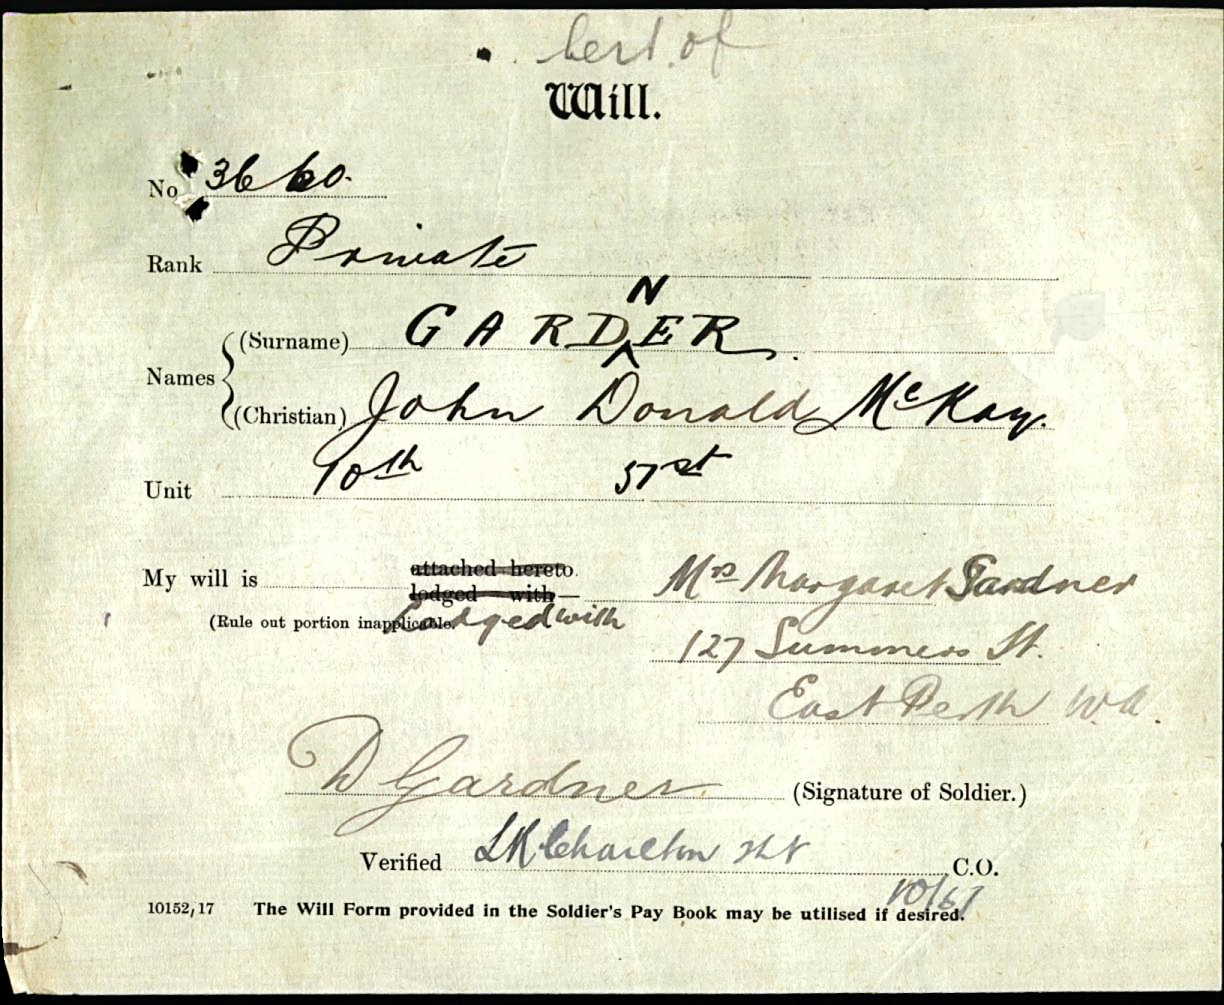 Cert. of
Will.
No 3660.
Rank Private
N
(Surname) GARDER.
Names
(Christian) John Donald McKay.
Unit 10th 51st
My will is attached hereto.
lodged with — Mrs Margaret Gardner
(Rule out portion inapplicable. Lodged with
127 Summers St.
East Perth W.A.
D Gardner (Signature of Soldier.)
Verified C.O.
10/51
10152/17 The Will Form provided in the Soldier's Pay Book may be utilised if desired.